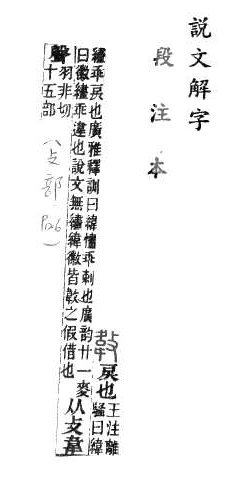 說文解字
段注本
𢾁戾也王注離
騷曰緯
繣乖戾也廣雅釋訓曰緯㦎乖剌也廣韵廿一麥
曰徽繣乖違也說文無繣緯徽皆𢾁之假借也
从攴韋
聲
羽非切
十五部
（攴部 P126）